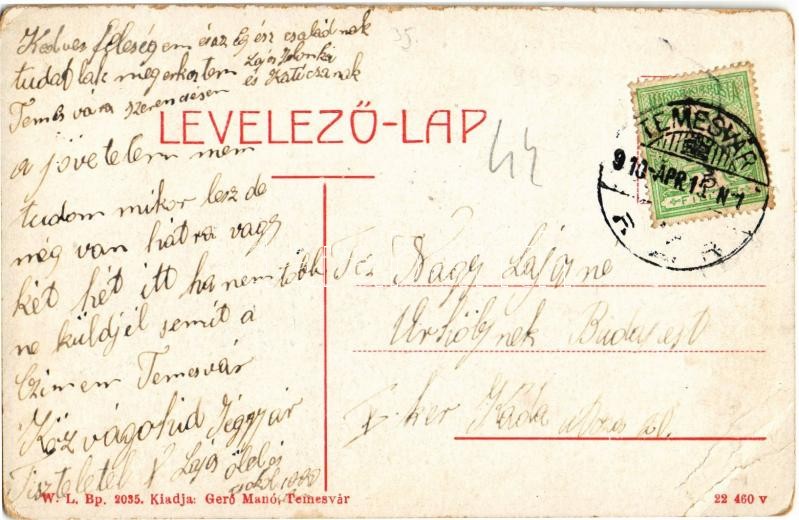 Kedves feleségem és az Egész családnak
tudatlak megerkestem Lajos Ilonka
és Katicsanak
Temesvára szerencsésen
LEVELEZŐ-LAP
a jövetelem nem
tudom mikor lesz de
még van hátra vagy
két hét itt ha nem több
ne küldjél semit a
Czimem Temesvár
Köz vágohid Jéggyár
Tisztelettel Lajos ölel és
44
MAGYAR KIR. POSTA
TEMESVÁR
910-ÁPR.15. N1
Nagy Lajosne
Urhölgynek Budapest
X. ker Kada utcza
W. L. Bp. 2035. Kiadja: Gerő Manó, Temesvár
22 460 v